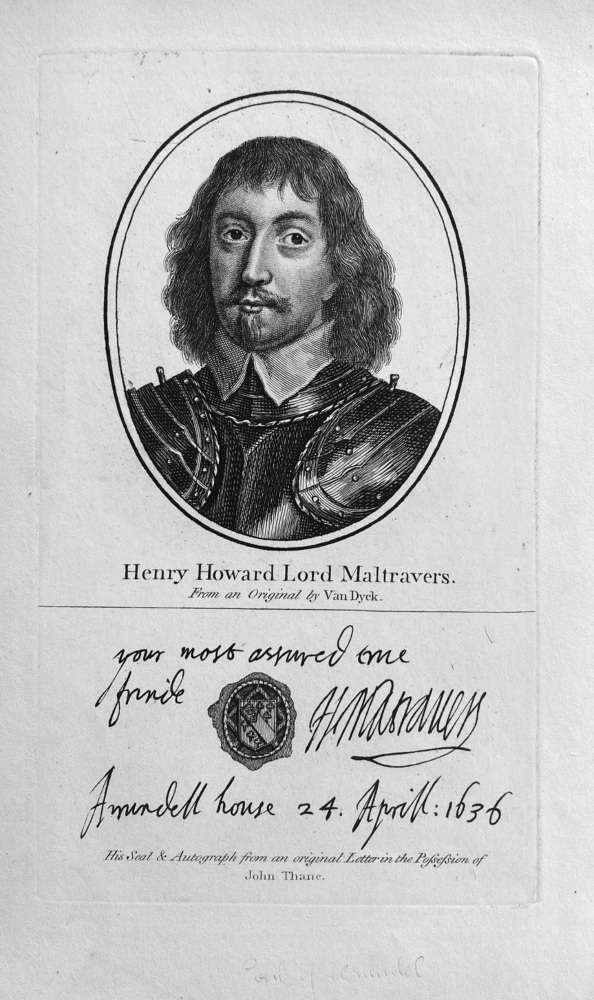 Henry Howard Lord Maltravers.
From an Original by Van Dyck.
your most assured true
frinde
HMaltravers
Arundell house 24. Aprill: 1636
His Seal & Autograph from an original Letter in the Poſseſsion of
John Thane.